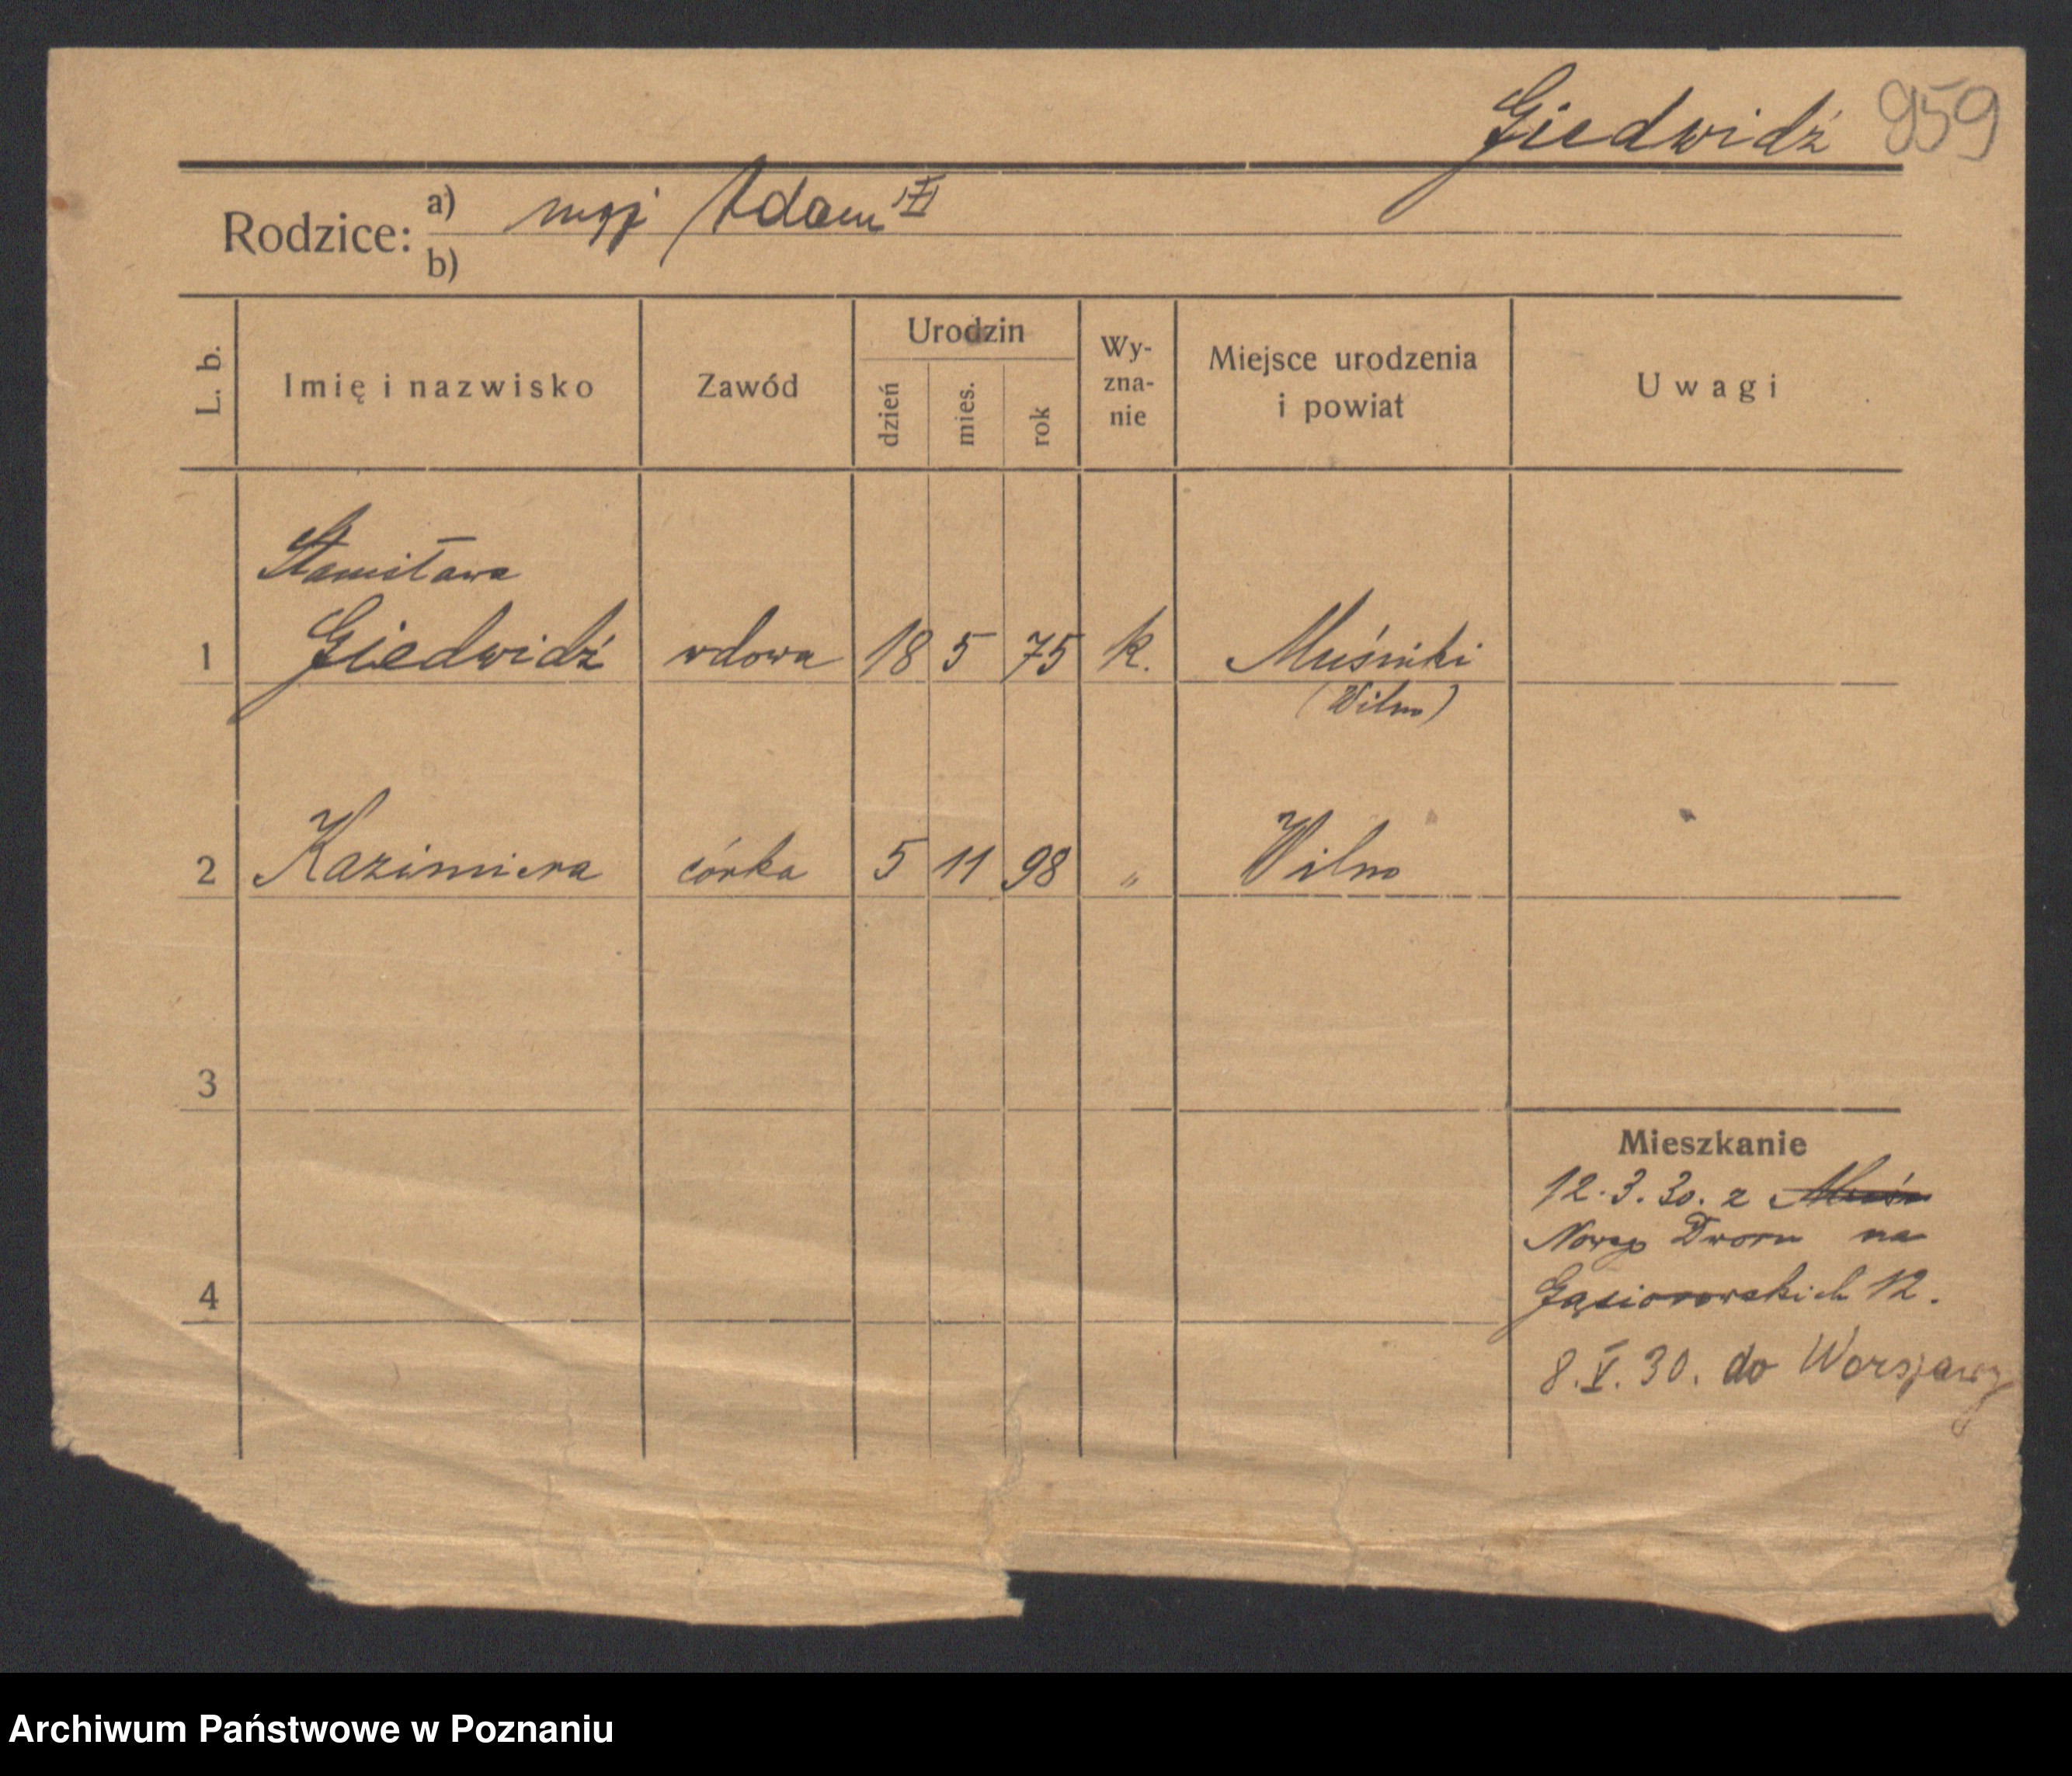 Giedwidź 959
Rodzice: a) mąż Adam
b)
L. b. Imię i nazwisko Zawód Urodzin dzień mies. rok Wy-zna-nie Miejsce urodzenia i powiat Uwagi
Stanisława
1 Giedwidź wdowa 18 5 75 k. Muśniki
(Wilno)
2 Kazimiera córka 5 11 98 " Wilno
3
Mieszkanie
12.3.30. z Muśn
Nowego Dworu na
4 Gąsiorowskich 12.
8.V.30. do Warszawy
Archiwum Państwowe w Poznaniu